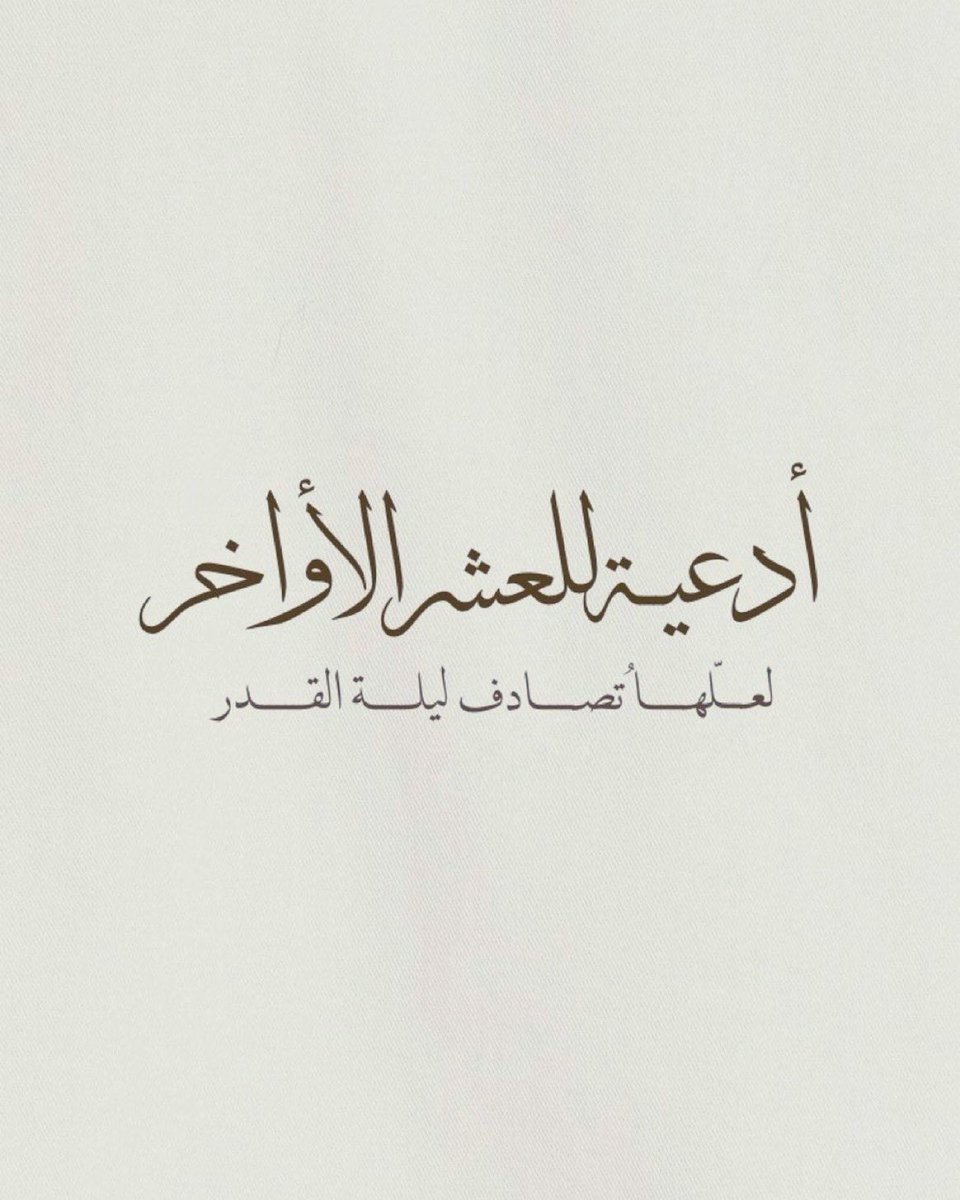 أدعية للعشر الأواخر
لعلّها تُصادف ليلة القدر